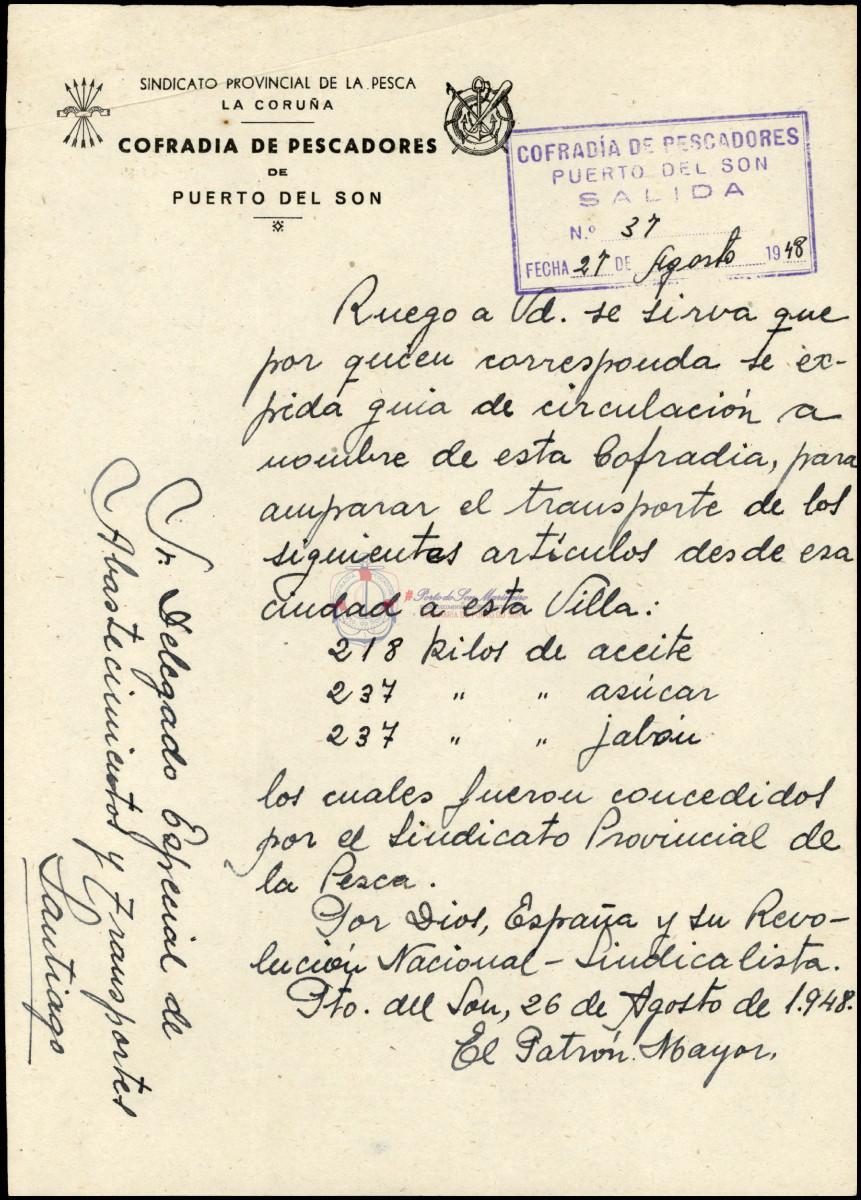 SINDICATO PROVINCIAL DE LA PESCA
LA CORUÑA
COFRADIA DE PESCADORES
DE
PUERTO DEL SON
COFRADÍA DE PESCADORES
PUERTO DEL SON
SALIDA
N.º 37
FECHA 27 DE Agosto 1948
Ruego a Vd. se sirva que
por quien corresponda se ex-
pida guia de circulación a
nombre de esta Cofradia, para
amparar el transporte de los
siguientes artículos desde esa
ciudad a esta Villa:
218 kilos de aceite
237 " " asúcar
237 " " jabón
los cuales fueron concedidos
por el Sindicato Provincial de
la Pesca.
Por Dios, España y su Revo-
lución Nacional-Sindicalista.
Pto. del Son, 26 de Agosto de 1.948.
El Patrón Mayor,
Sr. Delegado Especial de
Abastecimientos y Transportes
Santiago
# Porto do Son Mariñeiro